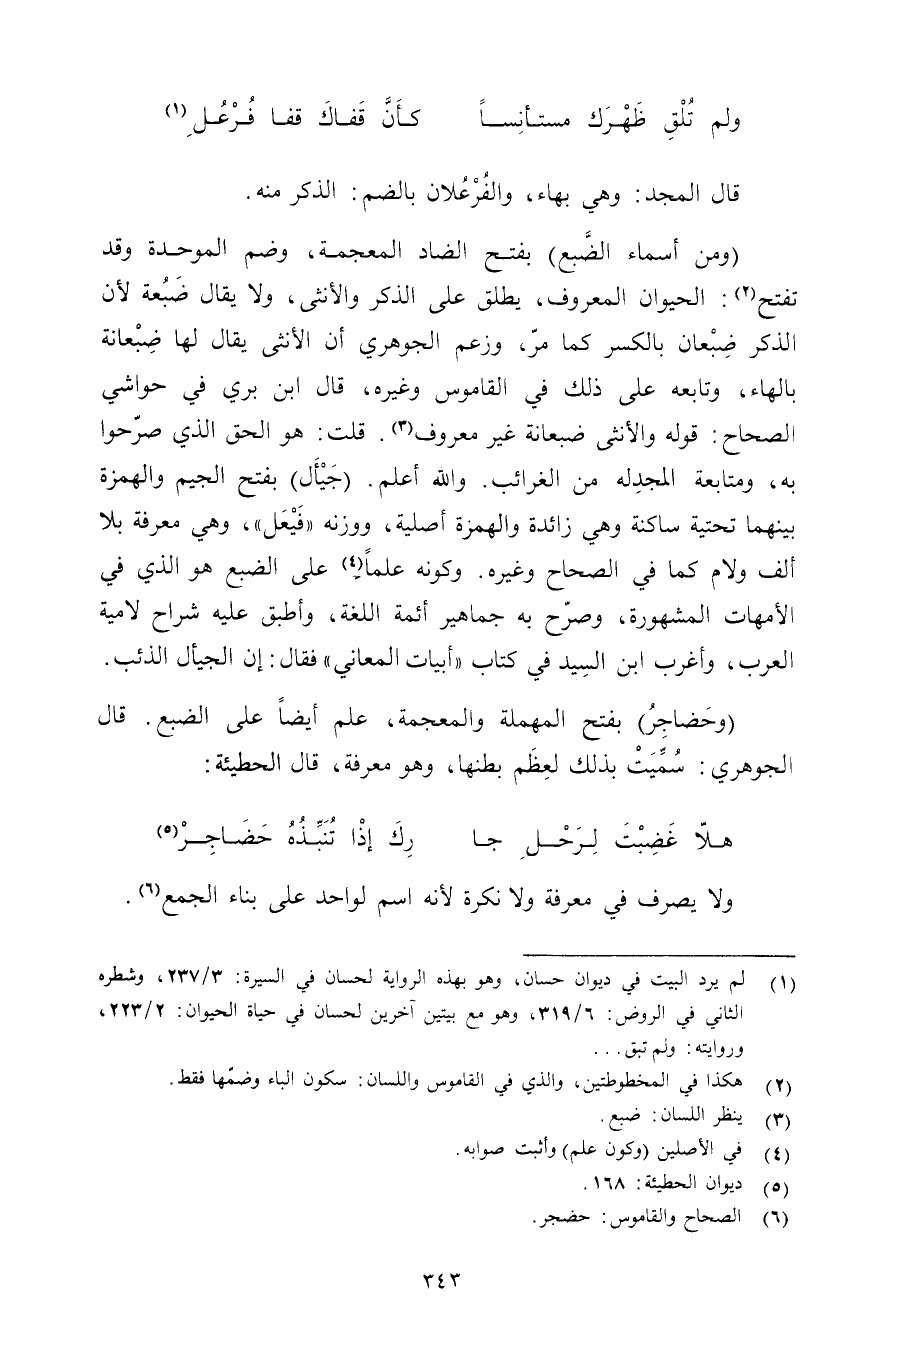 ولم تُلْقِ ظَهْرَك مستأنِساً كأَنَّ قَفاكَ قفا فُرْعُلِ(١)
قال المجد: وهي بهاء، والفُرْعُلان بالضم: الذكر منه.
(ومن أسماء الضَّبع) بفتح الضاد المعجمة، وضم الموحدة وقد
تفتح(٢): الحيوان المعروف، يطلق على الذكر والأنثى، ولا يقال ضَبُعة لأن
الذكر ضِبْعان بالكسر كما مرّ، وزعم الجوهري أن الأنثى يقال لها ضِبْعانة
بالهاء، وتابعه على ذلك في القاموس وغيره، قال ابن بري في حواشي
الصحاح: قوله والأنثى ضبعانة غير معروف(٣). قلت: هو الحق الذي صرّحوا
به، ومتابعة المجدِله من الغرائب. والله أعلم. (جَيْأَل) بفتح الجيم والهمزة
بينهما تحتية ساكنة وهي زائدة والهمزة أصلية، ووزنه «فَيْعَل»، وهي معرفة بلا
ألف ولام كما في الصحاح وغيره. وكونه علماً(٤) على الضبع هو الذي في
الأمهات المشهورة، وصرّح به جماهير أئمة اللغة، وأطبق عليه شراح لامية
العرب، وأغرب ابن السِيد في كتاب «أبيات المعاني» فقال: إن الجيأل الذئب.
(وحَضاجِرُ) بفتح المهملة والمعجمة، علم أيضاً على الضبع. قال
الجوهري: سُمِّيَتْ بذلك لعِظَم بطنها، وهو معرفة، قال الحطيئة:
هلّا غَضِبْتَ لِرَحْلِ جا رِكَ إذْا تُنَبِّذُهُ حَضَاجِرْ(٥)
ولا يصرف في معرفة ولا نكرة لأنه اسم لواحد على بناء الجمع(٦).
(١) لم يرد البيت في ديوان حسان، وهو بهذه الرواية لحسان في السيرة: ٢٣٧/٣، وشطره
الثاني في الروض: ٣١٩/٦، وهو مع بيتين آخرين لحسان في حياة الحيوان: ٢٢٣/٢،
وروايته: ولم تبق...
(٢) هكذا في المخطوطتين، والذي في القاموس واللسان: سكون الباء وضمّها فقط.
(٣) ينظر اللسان: ضبع.
(٤) في الأصلين (وكون علم) وأثبت صوابه.
(٥) ديوان الحطيئة: ١٦٨.
(٦) الصحاح والقاموس: حضجر.
٣٤٣